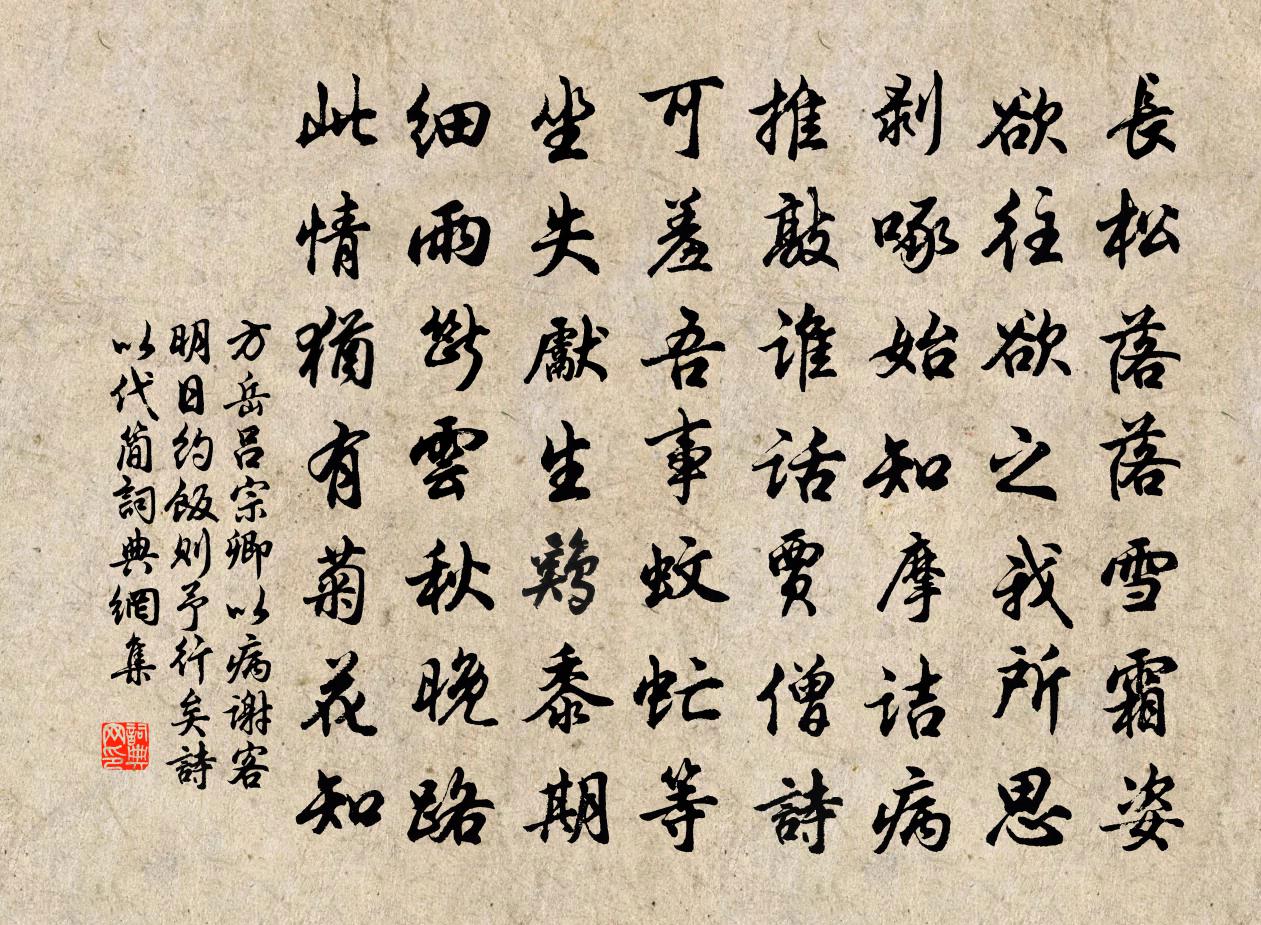 長松落落雪霜姿
欲往欲之我所思
剥啄始知摩詰病
推敲誰話賈僧詩
可羞吾事蚊虻等
坐失獻生鷄黍期
細雨斷雲秋晚路
此情猶有菊花知
方岳呂宗卿以病謝客
明日約飯則予行矣詩
以代簡詞典網集
詞典网印